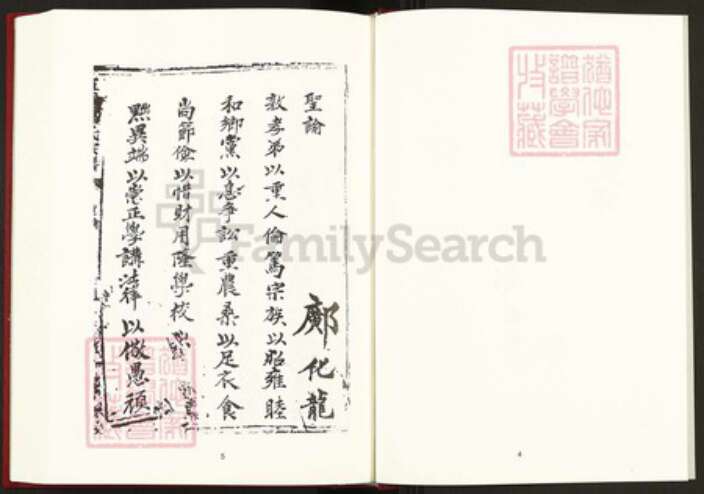 猶他家
譜學會
特藏
4
聖諭
鄺化龍
敦孝弟以重人倫篤宗族以昭雍睦
和鄉黨以息爭訟重農桑以足衣食
尚節儉以惜財用隆學校以端
黜異端以崇正學講法律以儆愚頑
猶他家
譜學會
特藏
5
FamilySearch